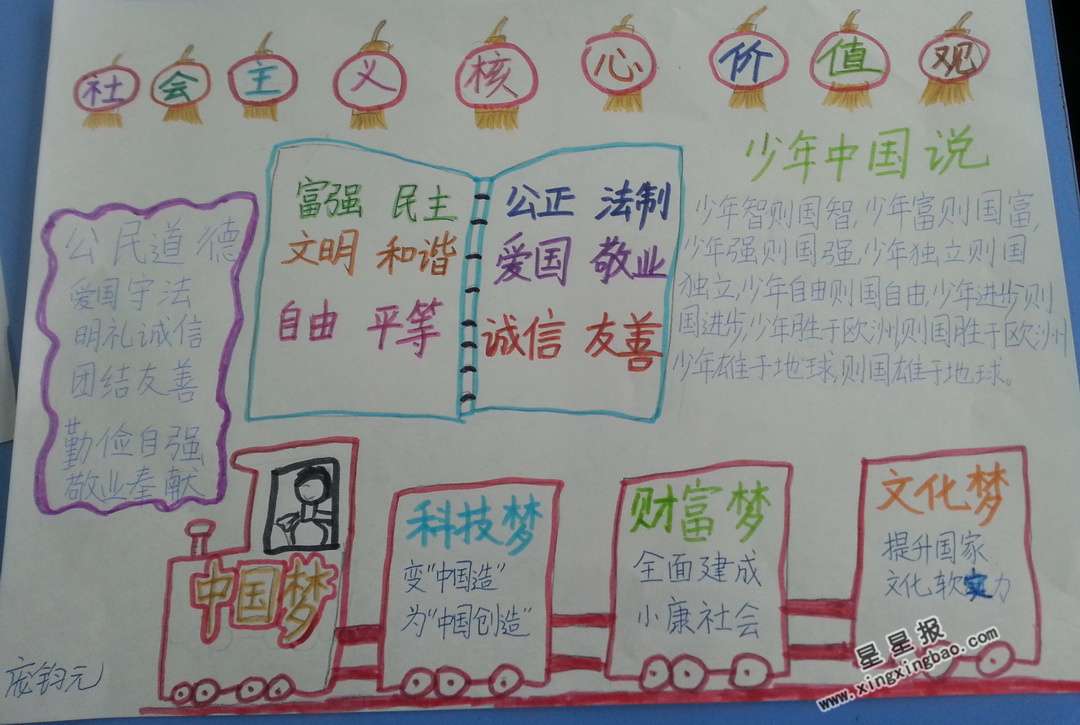 社会主义核心价值观
公民道德
爱国守法
明礼诚信
团结友善
勤俭自强
敬业奉献
富强 民主
文明 和谐
自由 平等
公正 法制
爱国 敬业
诚信 友善
少年中国说
少年智则国智,少年富则国富,
少年强则国强,少年独立则国
独立,少年自由则国自由,少年进步则
国进步,少年胜于欧洲,则国胜于欧洲
少年雄于地球,则国雄于地球。
中国梦
科技梦
变“中国造”
为“中国创造”
财富梦
全面建成
小康社会
文化梦
提升国家
文化软实力
星星报
www.xingxingbao.com